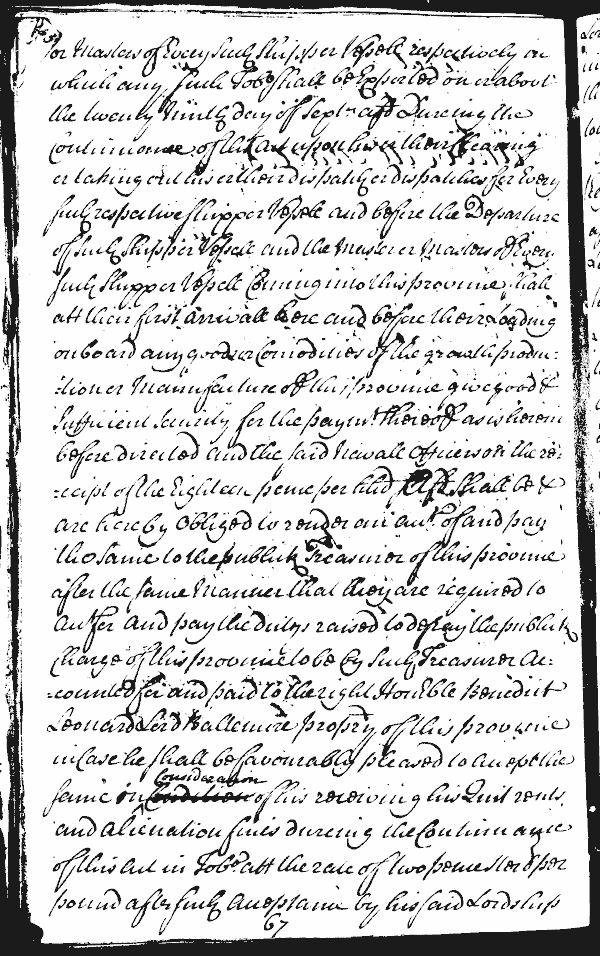 or Masters of Every such Ship or Vessell respectively on
which any such Tobo shall be Exported on or about
the twenty Ninth day of Septr and Dureing the
Continuance of this Act upon his or their Clearing
or takeing out his or their dispatch or dispatches for Every
such respective Ship or Vessell and before the Departure
of such Ship or Vessell and the Master or Masters of Every
such Ship or Vessell Comeing into this province shall
att their first arrivall here and before their Loading
on board any goods or Comodities of the growth produc:
:tion or Manufacture of this province give good &
Sufficient Security for the paymt thereof as is herein
before directed and the said Navall Officers on the re:
:ceipt of the Eighteen pence per hhd shall be &
are hereby Obliged to render an acct of and pay
the same to the publick Treasurer of this province
after the same Manner that they are required to
Answer and pay the dutys raised to defray the publick
Charge of this province to be by such Treasurer Ac:
:counted for and paid to the right Honble Benedict
Leonard Lord Baltemore propry of this province
in Case he shall be favourably pleased to accept the
Consideration
same in Condition of his receiveing his Quit rents
and alienation fines dureing the Continuance
of this Act in Tobo att the rate of two pence sterl per
pound after such acceptance by his said Lordship
67